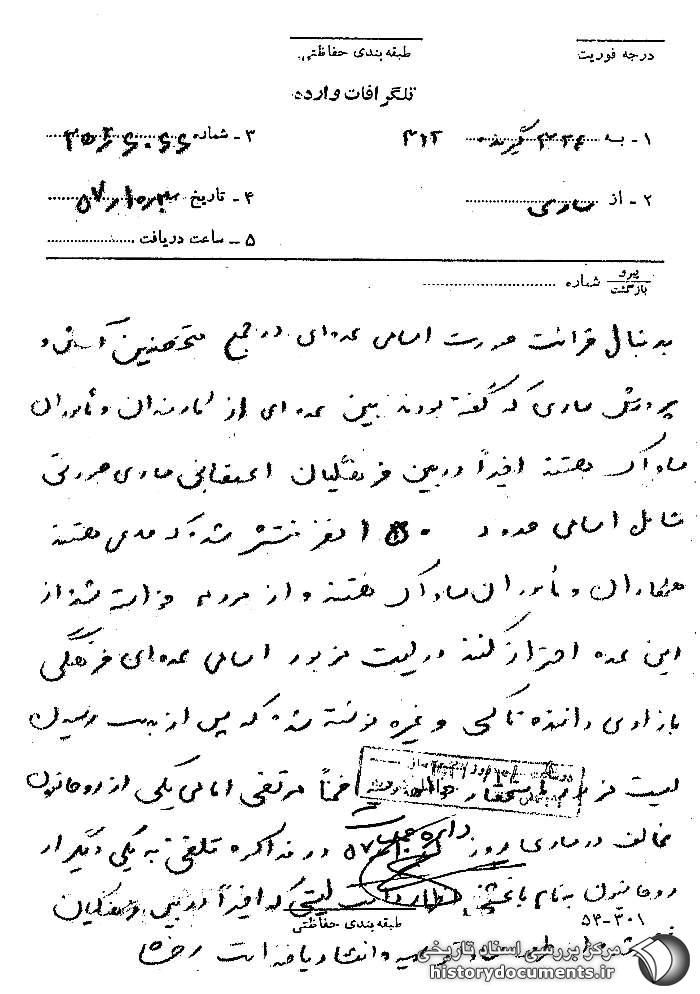 درجه فوریت
طبقه بندی حفاظتی
تلگرافات وارده
۱ - به ۳۱۲
۲ - از ساری
۳ - شماره
۴ - تاریخ ۵۷
۵ - ساعت دریافت
پیرو
بازگشت
شماره
بدنبال قرائت صورت اسامی عده‌ای در جمع متحصنین آموزش و
پرورش ساری که گفته بودند بین عده‌ای از کارمندان و مأموران
ساواک هستند اخیراً در بین فرهنگیان اعتصابی ساری صورتی
شامل اسامی حدود نفر منتشر شده که مدعی هستند
همکاران و مأموران ساواک هستند و از مردم خواسته شد از
این عده احتراز کنند در لیست مزبور اسامی عده‌ای فرهنگی
بازاری راننده تاکسی و غیره نوشته شده که پس از بدست رسیدن
لیست مزبور باستحضار خواهد رسید ضمناً مرتضی امامی یکی از روحانیون
مخالف در ساری روز ۵۷ در مذاکره تلفنی به یکی دیگر از
روحانیون بنام اظهار داشت لیستی که اخیراً در بین فرهنگیان
طبقه بندی حفاظتی
۵۴-۳۰۱
و انتشار یافته است
مرکز بررسی اسناد تاریخی
historydocuments.ir